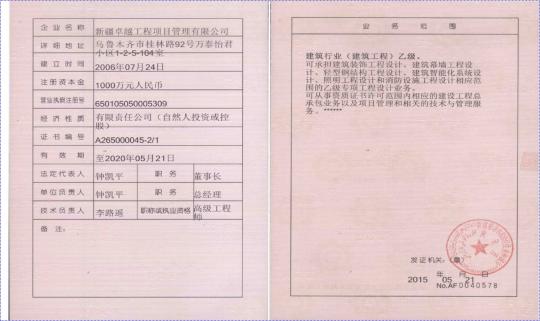 企业名称 新疆卓越工程项目管理有限公司
详细地址 乌鲁木齐市桂林路92号万泰怡君
小区1-2-5-104室
建立时间 2006年07月24日
注册资本金 1000万元人民币
营业执照注册号 650105050005309
经济性质 有限责任公司（自然人投资或控
股）
证书编号 A265000045-2/1
有效期 至2020年05月21日
法定代表人 钟凯平 职务 董事长
单位负责人 钟凯平 职务 总经理
技术负责人 李路遥 职称或执业资格 高级工程
师
备注：
业务范围
建筑行业（建筑工程）乙级。
可承担建筑装饰工程设计、建筑幕墙工程设
计、轻型钢结构工程设计、建筑智能化系统设
计、照明工程设计和消防设施工程设计相应范
围的乙级专项工程设计业务。
可从事资质证书许可范围内相应的建设工程总
承包业务以及项目管理和相关的技术与管理服
务。******
发证机关：（章）
2015 年 05 月 21 日
No.AF0040578